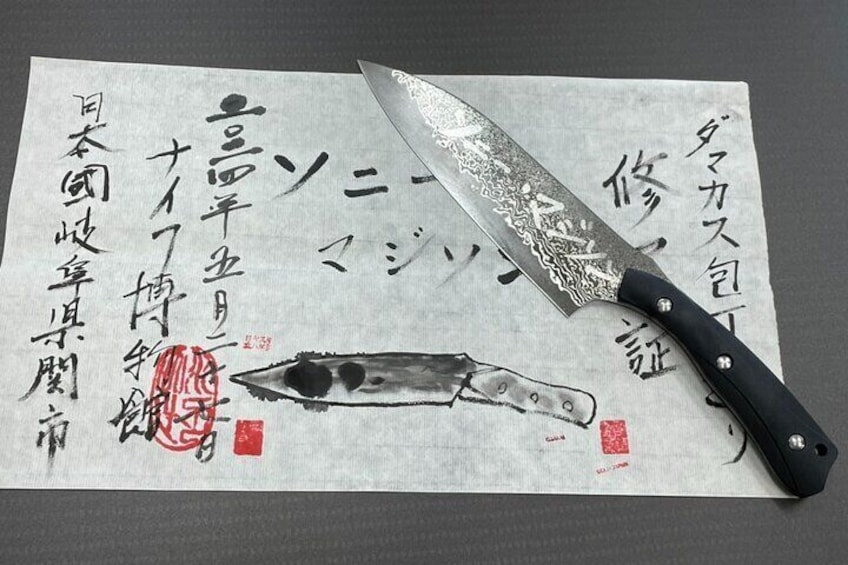 ダマカス包丁
り
修了証
ソニー
マジソン
二〇二四年五月二十
日
ナイフ博物館
日本國岐阜県関市